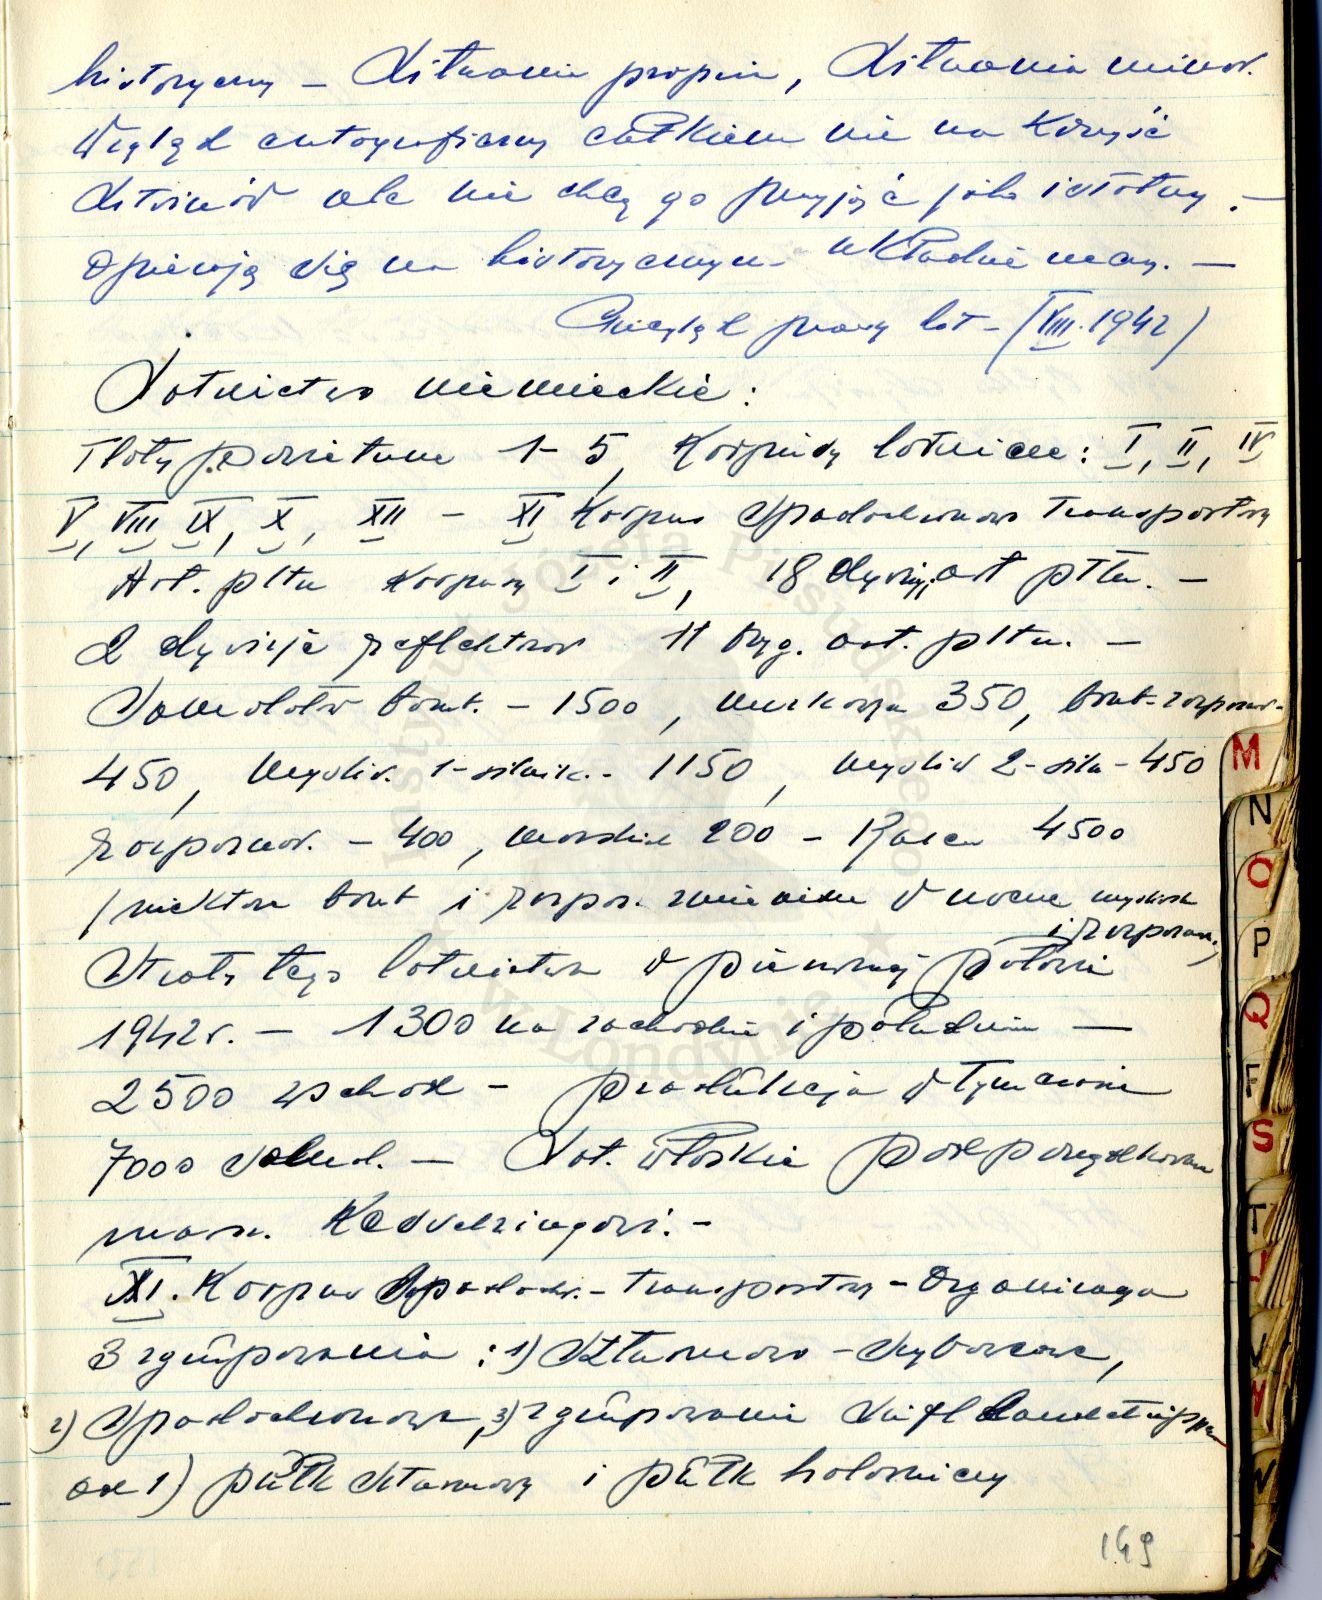 historyczny – Lituania propria, Lituania minor.
Wzgląd etnograficzny całkiem nie na korzyść
Litwinów ale nie chcą go przyjąć jako istotny. –
Opierają się na historycznym układzie rzeczy. –
Przegląd prasy lot – (VIII. 1942)
Lotnictwo niemieckie:
Floty powietrzne 1–5, Korpusy lotnicze: I, II, IV
V, VIII IX, X, XII – XI Korpus Spadochronowo transportowy
Art. pltn Korpusy I i II, 18 dywizji art pltn. –
2 dywizje reflektrow 11 bryg. art. pltn. –
Samolotów bomb. – 1500, nurkowych 350, bomb-rozpozn-
450, myśliw. 1-silnik. – 1150, myśliw 2-siln – 450
rozpoznaw. – 400, morskie 200 – Razem 4500
/niektóre bomb i rozpoz. zmienione w nocne myśliwsk
i rozpozn./
Straty tego lotnictwa w pierwszej połowie
1942 r. – 1300 na zachodzie i południu –
2500 wschod – produkcja w tym czasie
7000 samol. – Lot. włoskie podporządkowane
marsz. Kesselringowi. –
XI. Korpus Spadochr. – transportowy – Organizacja
3 zgrupowania: 1) Szturmowo – Szybowcowe,
2) Spadochronowe, 3) zgrupowanie Luftlandetruppen
ad 1) pułk szturmowy i pułk holowniczy
149
M
N
O
P
Q
R
S
T
U
V
W
Instytut Józefa Piłsudskiego
w Londynie